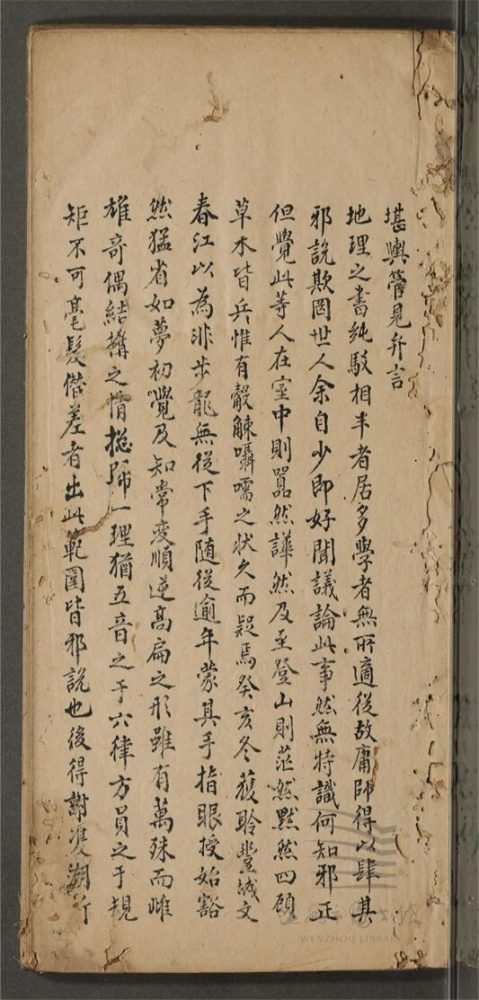 堪輿管見弁言
地理之書純駁相半者居多學者無所適從故庸師得以肆其
邪說欺罔世人余自少即好聞議論此事然無特識何知邪正
但覺此等人在室中則囂然譁然及至登山則茫然黙然四顧
草木皆兵惟有觳觫囁嚅之狀久而疑焉癸亥冬獲聆豐城文
春江以為非步龍無從下手随從逾年蒙其手指眼授始豁
然猛省如夢初覺及知常变順逆高扁之形雖有萬殊而雌
雄奇偶結搆之情揔歸一理猶五音之于六律方員之于規
矩不可毫髮僭差者出此範圍皆邪說也後得謝雙湖所
WENZHOU LIBRARY